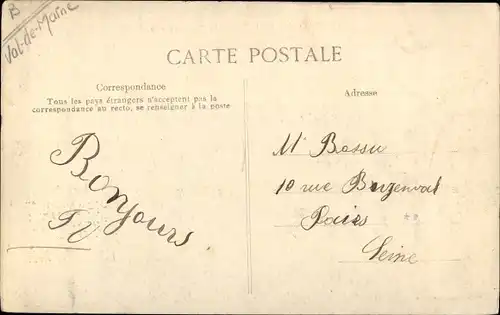 B
Val-de-Marne
CARTE POSTALE
Correspondance
Tous les pays étrangers n'acceptent pas la
correspondance au recto, se renseigner à la poste
Adresse
Bonjours
Mr Bassu
10 rue Buzenval
Paris
Seine